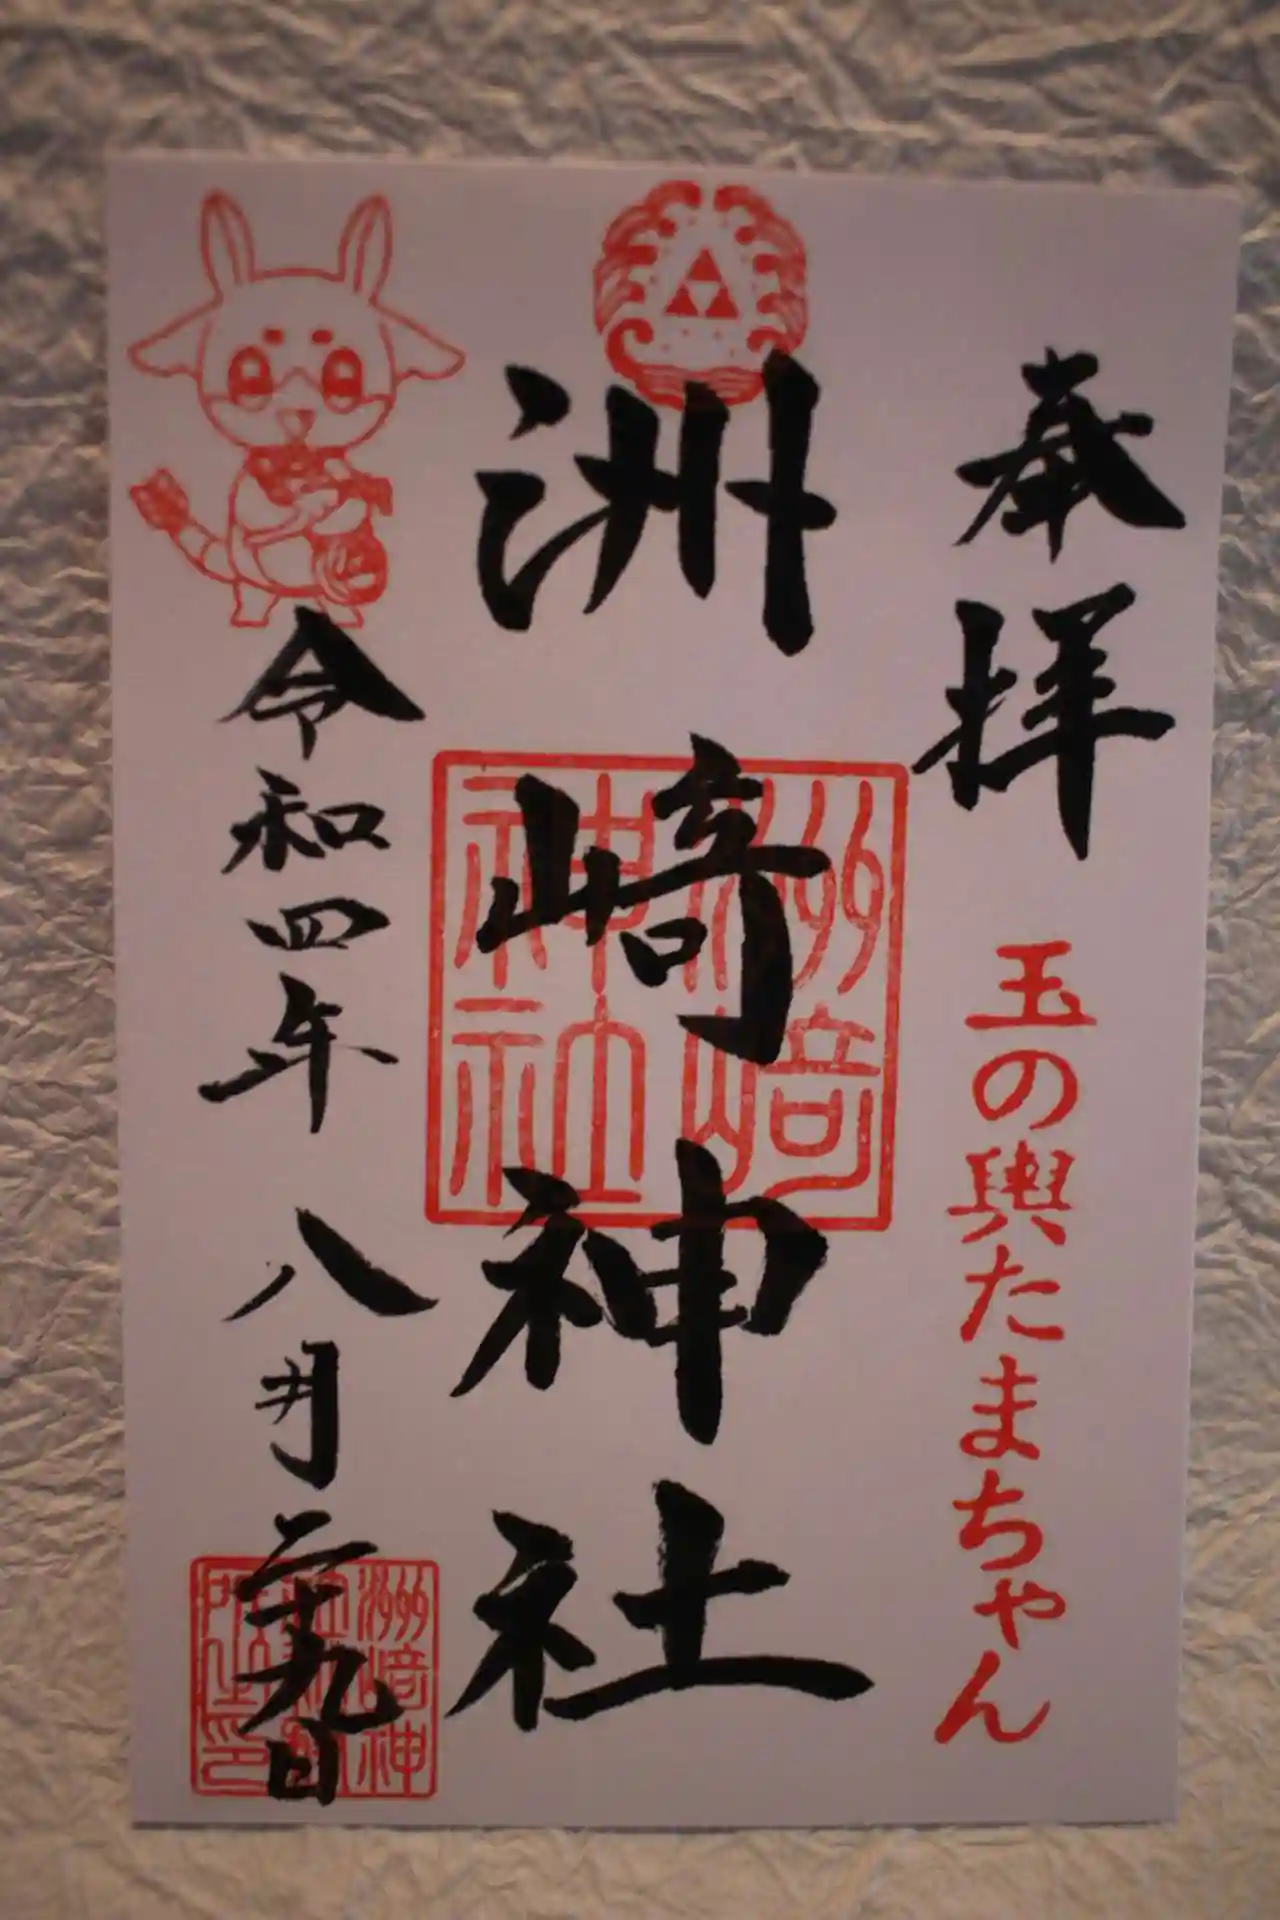 奉拝
玉の輿たまちゃん
洲崎神社
洲崎神社
令和四年 八月二十九日